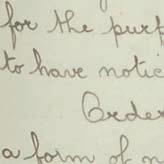 for the purp
to have notic
Order
a form of n